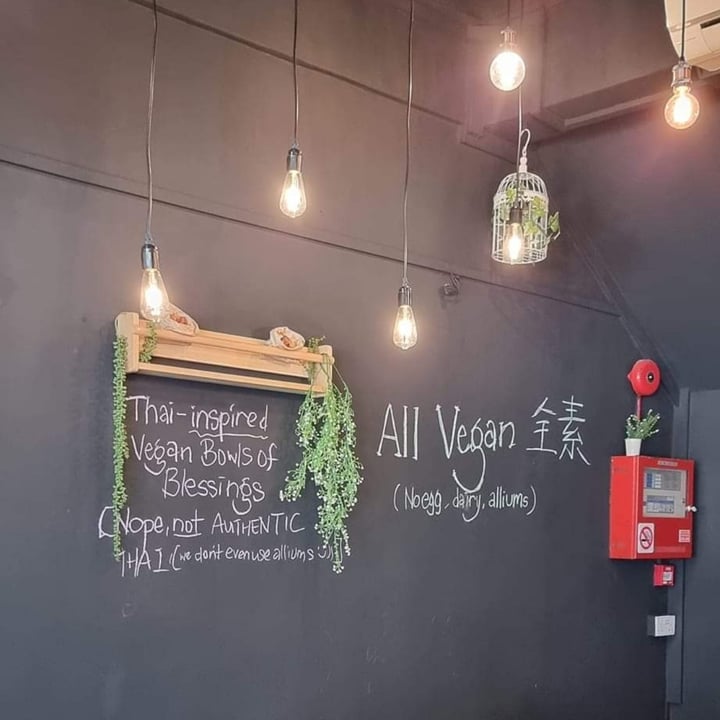 Thai-inspired
Vegan Bowls of
Blessings
(Nope, not AUTHENTIC
THAI, (we don't even use alliums :))
All Vegan 全素
(No egg, dairy, alliums)